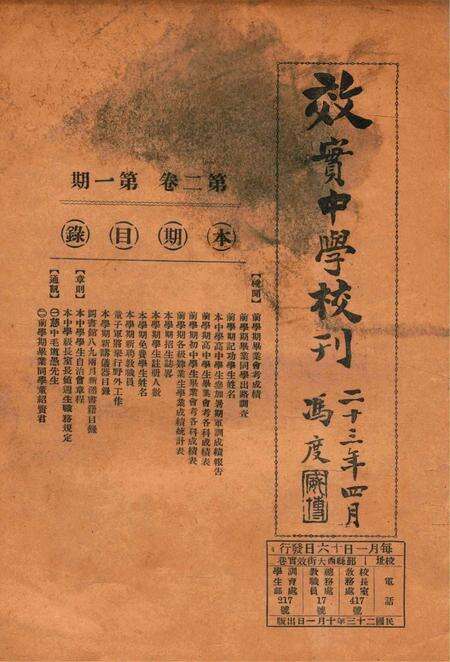 效實中學校刊
二十三年四月
馮度
第二卷 第一期
本期目錄
【校聞】
前學期畢業會考成績
前學期畢業同學出路調查
前學期記功學生姓名
本中學高中學生參加暑期軍訓成績報告
前學期高中學生畢業會考各科成績表
前學期初中學生畢業會考各科成績表
前學期各級肄業生學業成績統計表
本學期招生誌畧
本學期學生註冊人數
本學期免費學生姓名
本學期新聘教職員
童子軍將舉行野外工作
本學期新購儀器目錄
圖書館八九兩月新添書籍目錄
【章則】
本中學學生自治會章程
本中學級長室長值週生職務規定
【通訊】
㊀慈中毛
㊁前學期畢業同學童紹賢君
每月一日十六日發行
校址 鄞縣西大街效實巷
電話
校長室 教務處 417號
總務處 教職員 17號
訓育處 學生部 217號
民國二十三年十月一日出版